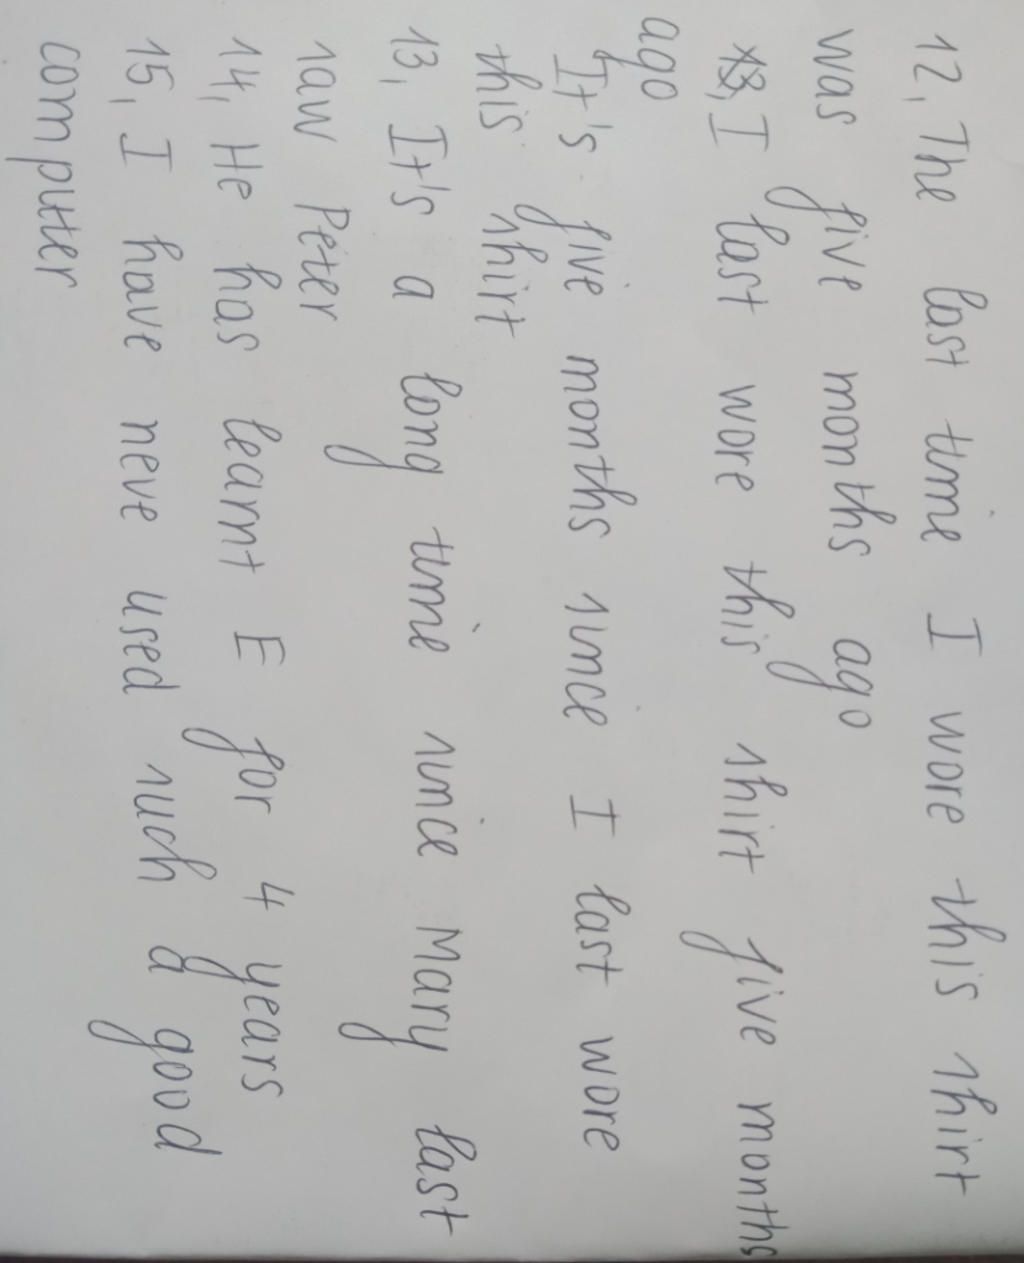 12, The last time I wore this shirt
was five months ago
I last wore this shirt five months
ago
It's five months since I last wore
this shirt
13, It's a long time since Mary last
saw Peter
14, He has learnt E for 4 years
15, I have neve used such a good
computter